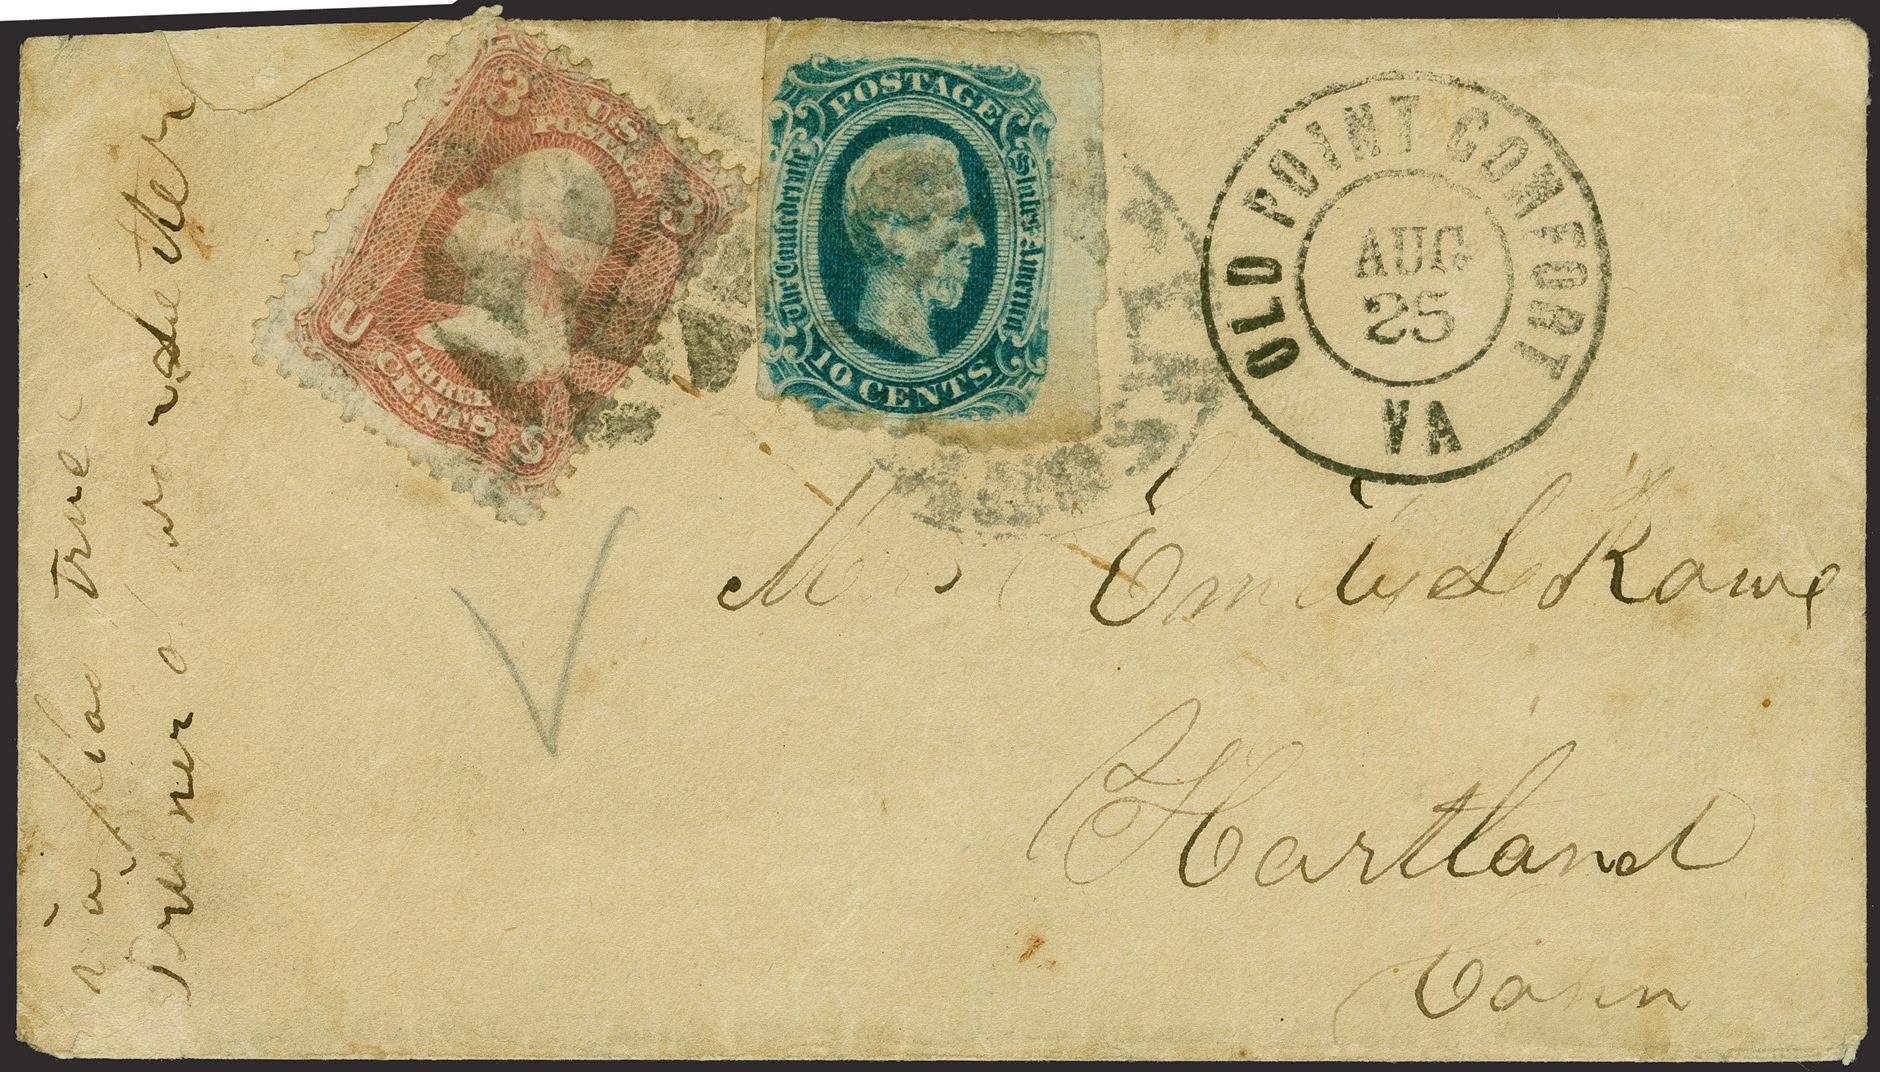 3
U.S.
POSTAGE
3
U
THREE
CENTS
S
POSTAGE
The Confederate
States America
10 CENTS
OLD POINT COMFORT
AUG
25
VA
Mrs Emily L Rowe
Hartland
Conn
via flag true
prisoner letter